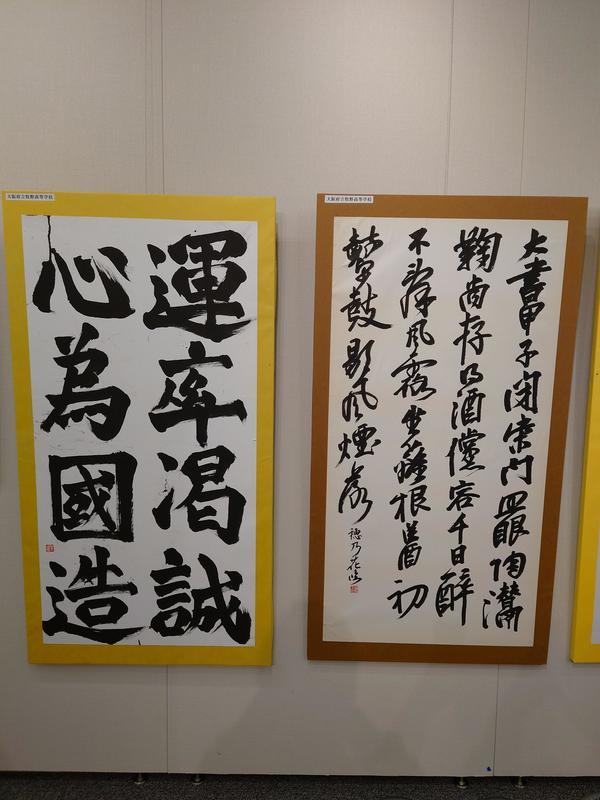 大阪府立牧野高等学校
運率渇誠
心為國造
大阪府立牧野高等学校
大書甲子閉柴門眼陶
鞠尚存酒儻容千日醉
不風露坐根初
鼓風煙
穂乃花臨